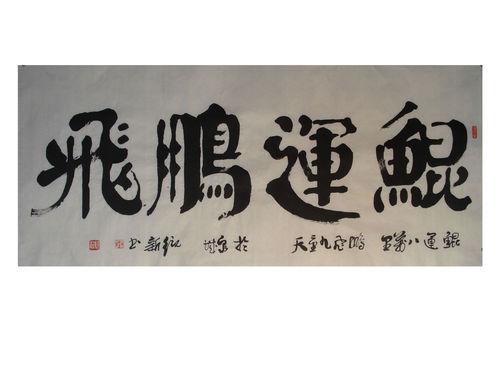 鯤運鵬飛
鯤運八萬里 鵬飛九重天 於 新書